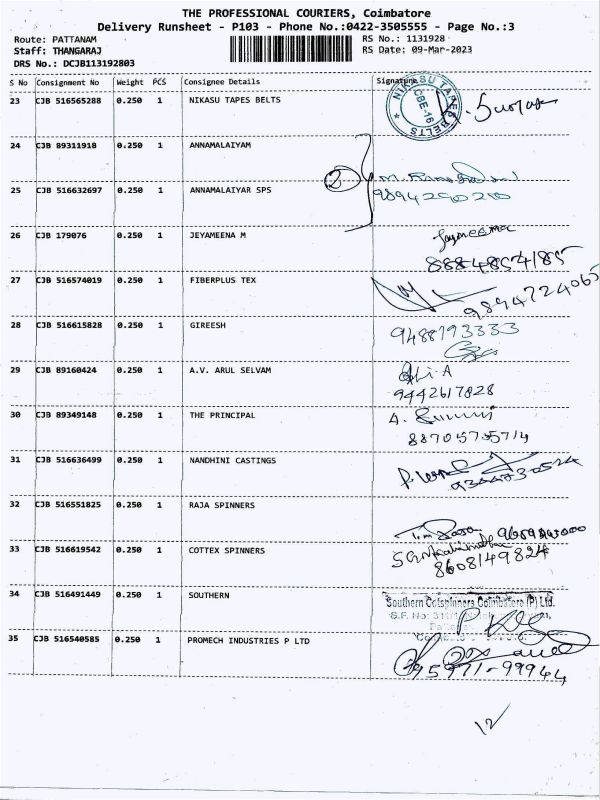 THE PROFESSIONAL COURIERS, Coimbatore
Delivery Runsheet - P103 - Phone No.:0422-3505555 - Page No.:3
Route: PATTANAM
RS No.: 1131928
Staff: THANGARAJ
RS Date: 09-Mar-2023
DRS No.: DCJB113192803
S No Consignment No Weight PCS Consignee Details Signature
23 CJB 516565288 0.250 1 NIKASU TAPES BELTS
NIKASU TAPES BELTS CBE-16
24 CJB 89311918 0.250 1 ANNAMALAIYAM
2
25 CJB 516632697 0.250 1 ANNAMALAIYAR SPS
9894290210
26 CJB 179076 0.250 1 JEYAMEENA M
Jeyameena
8884854185
27 CJB 516574019 0.250 1 FIBERPLUS TEX
9894724065
28 CJB 516615828 0.250 1 GIREESH
9488793333
29 CJB 89160424 0.250 1 A.V. ARUL SELVAM
9442617828
30 CJB 89349148 0.250 1 THE PRINCIPAL
31 CJB 516636499 0.250 1 NANDHINI CASTINGS
32 CJB 516551825 0.250 1 RAJA SPINNERS
33 CJB 516619542 0.250 1 COTTEX SPINNERS
8608149824
34 CJB 516491449 0.250 1 SOUTHERN
Southern Cotspinners Coimbatore (P) Ltd.
35 CJB 516540585 0.250 1 PROMECH INDUSTRIES P LTD
95971-99944
12